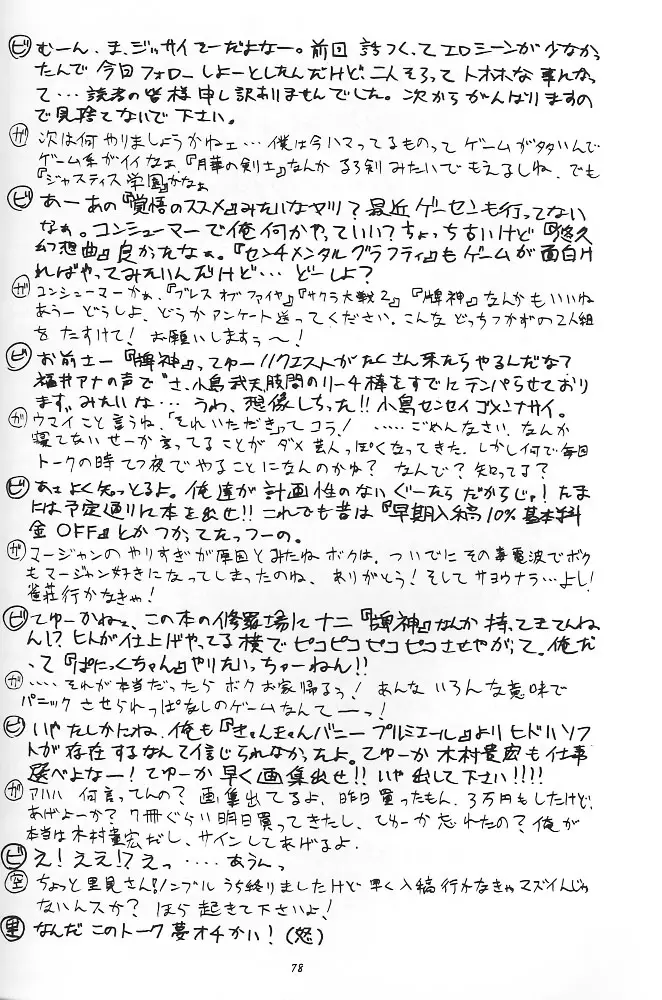 ビ むーん、ま、ジッサイてーだよなー。前回 誌つくってエロシーンが少なかっ
たんで 今日フォローしよーとしたんだけど、二人そろって トホホな事んなっ
て…読者の皆様申し訳ありませんでした。次からがんばりますの
で見捨てないで下さい。
ガ 次は何やりましょうかねェ… 僕は今ハマってるものって ゲームが多いんで
ゲーム系がイイなぁ、『月華の剣士』なんか るろ剣みたいでもえるしね、でも
『ジャスティス学園』かなぁ
ビ あー あの『覚悟のススメ』みたいなヤツ? 最近ゲーセンも行ってない
なぁ。コンシューマーで俺何かやっていい? ちょっち古いけど『悠久
幻想曲』良かったなぁ。『センチメンタルグラフティ』もゲームが面白け
ればやってみたいんだけど… どーしよ?
ガ コンシューマーかぁ、『ブレス オブ ファイヤ』『サクラ大戦2』『牌神』なんかもいいね
あうー どうしよ、どうかアンケート送ってください。こんな どっちつかずの2人組
を たすけて! お願いしますぅ〜!
ビ お前さー『牌神』ってゆー ハリクエストがたくさん来たらやるんだな?
福井アナの声で"さ、小島武夫股間のリーチ棒をすでにテンパらせており
ます"みたいな… うわ、想像しちった!! 小島センセイゴメンナサイ。
ガ ウマイこと言うね、「それいただき」ってコラ! ……ごめんなさい、なんか
寝てないせーか言ってることが ダメ芸人っぽくなってきた、しかし何で毎回
トークの時てつ夜でやることになんのかな? なんで? 知ってる?
ビ あぁよく知っとるよ。俺達が計画性のないぐーたら だからじゃ! たま
には予定通りに本を出せ!! これでも昔は『早期入稿10%基本料
金OFF』とかつかってたっつーの。
ガ マージャンのやりすぎが原因とみたね ボクは、ついでに その毒電波でボク
もマージャン好きになってしまったのね、ありがとう! そして サヨウナラ…よし!
雀荘行かなきゃ!
ビ てゆーかねェ、この本の修羅場にナニ『牌神』なんか持ってきてんね
ん!? ヒトが仕上げやってる横でピコピコピコピコさせやがって。俺だ
って『ぱにっくちゃん』やりたいっちゅーねん!!
ガ ……それが本当だったら ボクお家帰るっ! あんな いろんな意味で
パニック させられっぱなしのゲームなんてーっ!
ビ いやたしかにね、俺も『きゃんきゃんバニー プルミエール』よりヒドいソフ
トが存在するなんて信じられなかったよ。てゆーか木村貴宏も仕事
選べよなー! てゆーか早く画集出せ!! いや出して下さい!!!!
ガ アハハ 何言ってんの? 画集出てるよ、昨日買ったもん、3万円もしたけど、
あげよーか? 7冊ぐらい明日買ってきたし、てゆーか忘れたの? 俺が
本当は木村貴宏だし、サインしてあげるよ。
ビ え! ええ!? えっ …… あうんっ
空 ちょっと里見さん! ノンブル うち終りましたけど 早く入稿行かなきゃマズイんじゃ
ないんスか? ほら 起きて下さいよ!
里 なんだ このトーク夢オチかい! (怒)
78